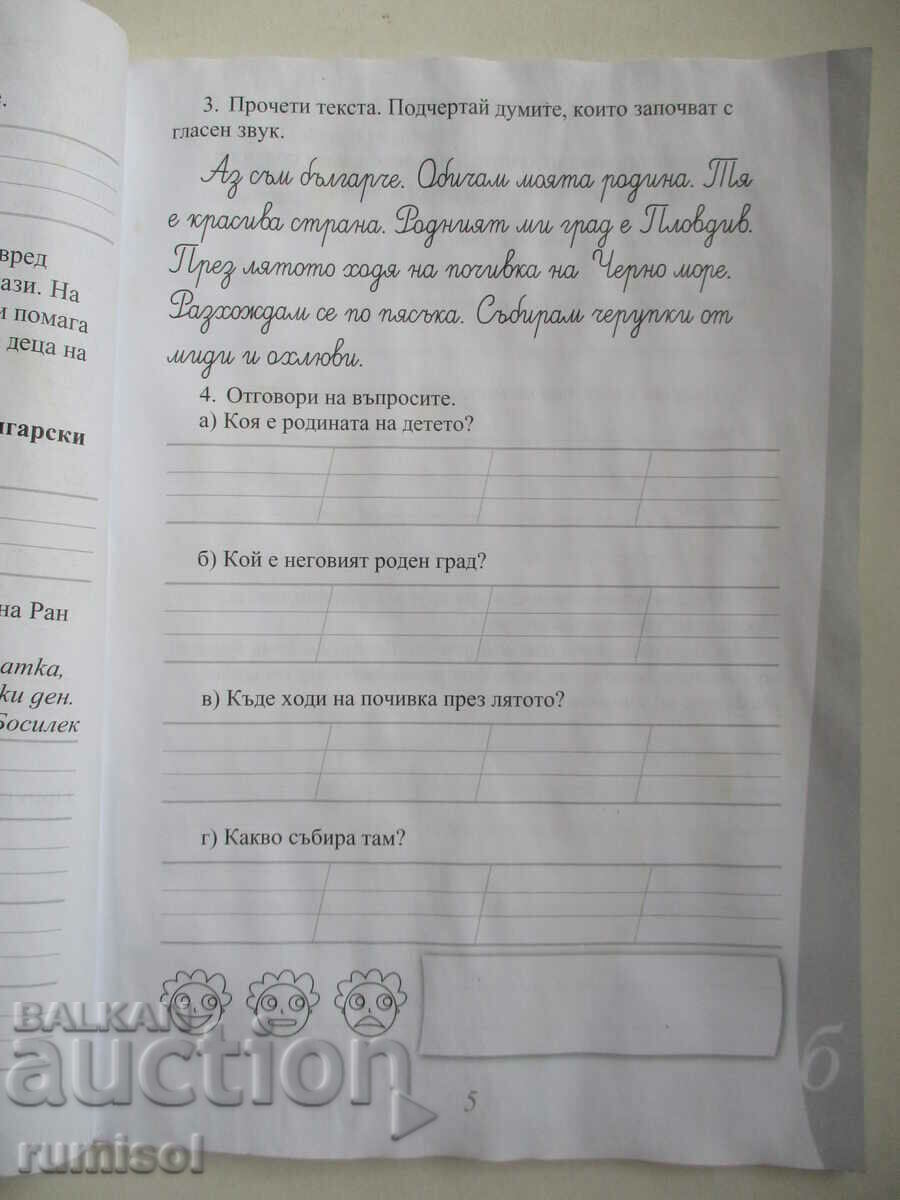 е.
вред
ази. На
и помага
деца на
лгарски
на Ран
атка,
ки ден.
Босилек
3. Прочети текста. Подчертай думите, които започват с
гласен звук.
Аз съм българче. Обичам моята родина. Тя
е красива страна. Родният ми град е Пловдив.
През лятото ходя на почивка на Черно море.
Разхождам се по пясъка. Събирам черупки от
миди и охлюви.
4. Отговори на въпросите.
а) Коя е родината на детето?
б) Кой е неговият роден град?
в) Къде ходи на почивка през лятото?
г) Какво събира там?
5
б
BALKAN
auction
rumisol